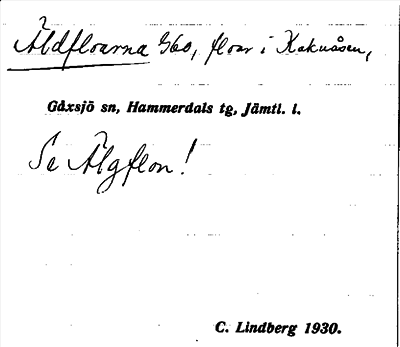 Äldfloarna 960, floar i Kakuåsen,
Gåxsjö sn, Hammerdals tg, Jämtl. l.
Se Älgflon!
C. Lindberg 1930.